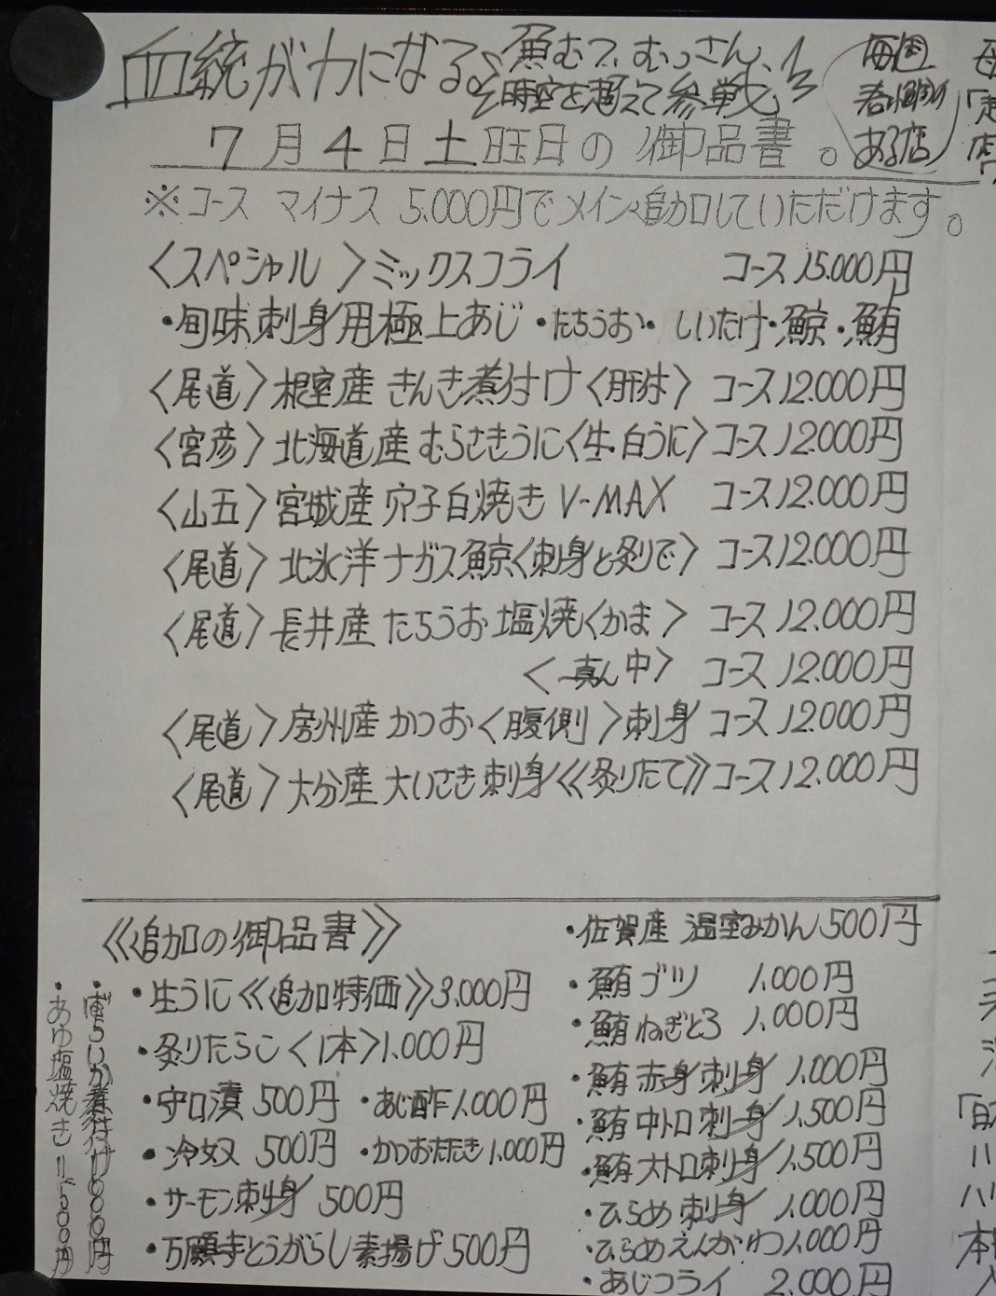 血統が力になる。
魚むつ、むっさん、
時空を超えて参戦
毎週
ある店
7月4日土曜日の御品書。
※コース マイナス 5.000円でメイン追加していただけます。
〈スペシャル〉ミックスフライ コース15.000円
・旬味刺身用極上あじ・たちうお・しいたけ・鯨・鮪
〈尾道〉根室産 きんき煮付け〈肝付〉 コース12.000円
〈宮彦〉北海道産 むらさきうに〈生・白うに〉コース12.000円
〈山五〉宮城産 穴子白焼き V-MAX コース12.000円
〈尾道〉北氷洋ナガス鯨〈刺身と炙りで〉 コース12.000円
〈尾道〉長井産 たちうお 塩焼〈かま〉 コース12.000円
〈真ん中〉 コース12.000円
〈尾道〉房州産 かつお〈腹側〉刺身 コース12.000円
〈尾道〉大分産 大いさき刺身《炙りたて》コース12.000円
《追加の御品書》
・生うに《追加特価》3.000円
・炙りたらこ〈1本〉1.000円
・守口漬 500円 ・あじ酢1.000円
・冷奴 500円 ・かつおたたき1.000円
・サーモン刺身 500円
・万願寺とうがらし素揚げ500円
・佐賀産 温室みかん1500円
・鮪ブツ 1.000円
・鮪ねぎとろ 1.000円
・鮪赤身刺身 1.000円
・鮪中トロ刺身 1.500円
・鮪大トロ刺身 1.500円
・ひらめ刺身 1.000円
・ひらめえんがわ1.000円
・あじフライ 2.000円
・あゆ塩焼き 1.500円